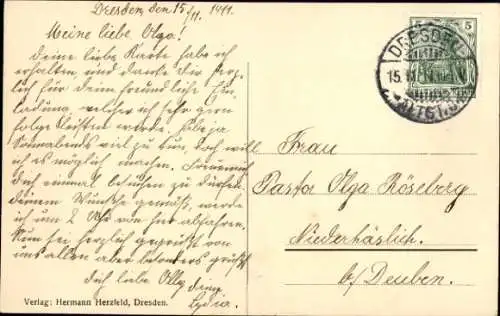 Dresden, den 15/11. 1911.
Meine liebe Olga!
Deine liebe Karte habe ich
erhalten, und danke Dir herz-
lich für Deine freundliche Ein-
ladung, welcher ich sehr gern
folge leisten werde. Habe ja
Sonnabends viel zu tun, doch will
ich es möglich machen. Freue mich
Dich einmal besuchen zu dürfen.
Deinem Wunsche gemäß, werde
ich um 2 Uhr von hier abfahren.
Nun sei herzlich gegrüßt von
uns allen aber besonders grüßt
Dich liebe Olly
Deine
Lydia.
Verlag: Hermann Herzfeld, Dresden.
5
DRESDEN
15.11.11
ALTST.
Frau
Pastor Olga Röseberg
Niederhäslich.
b/ Deuben.